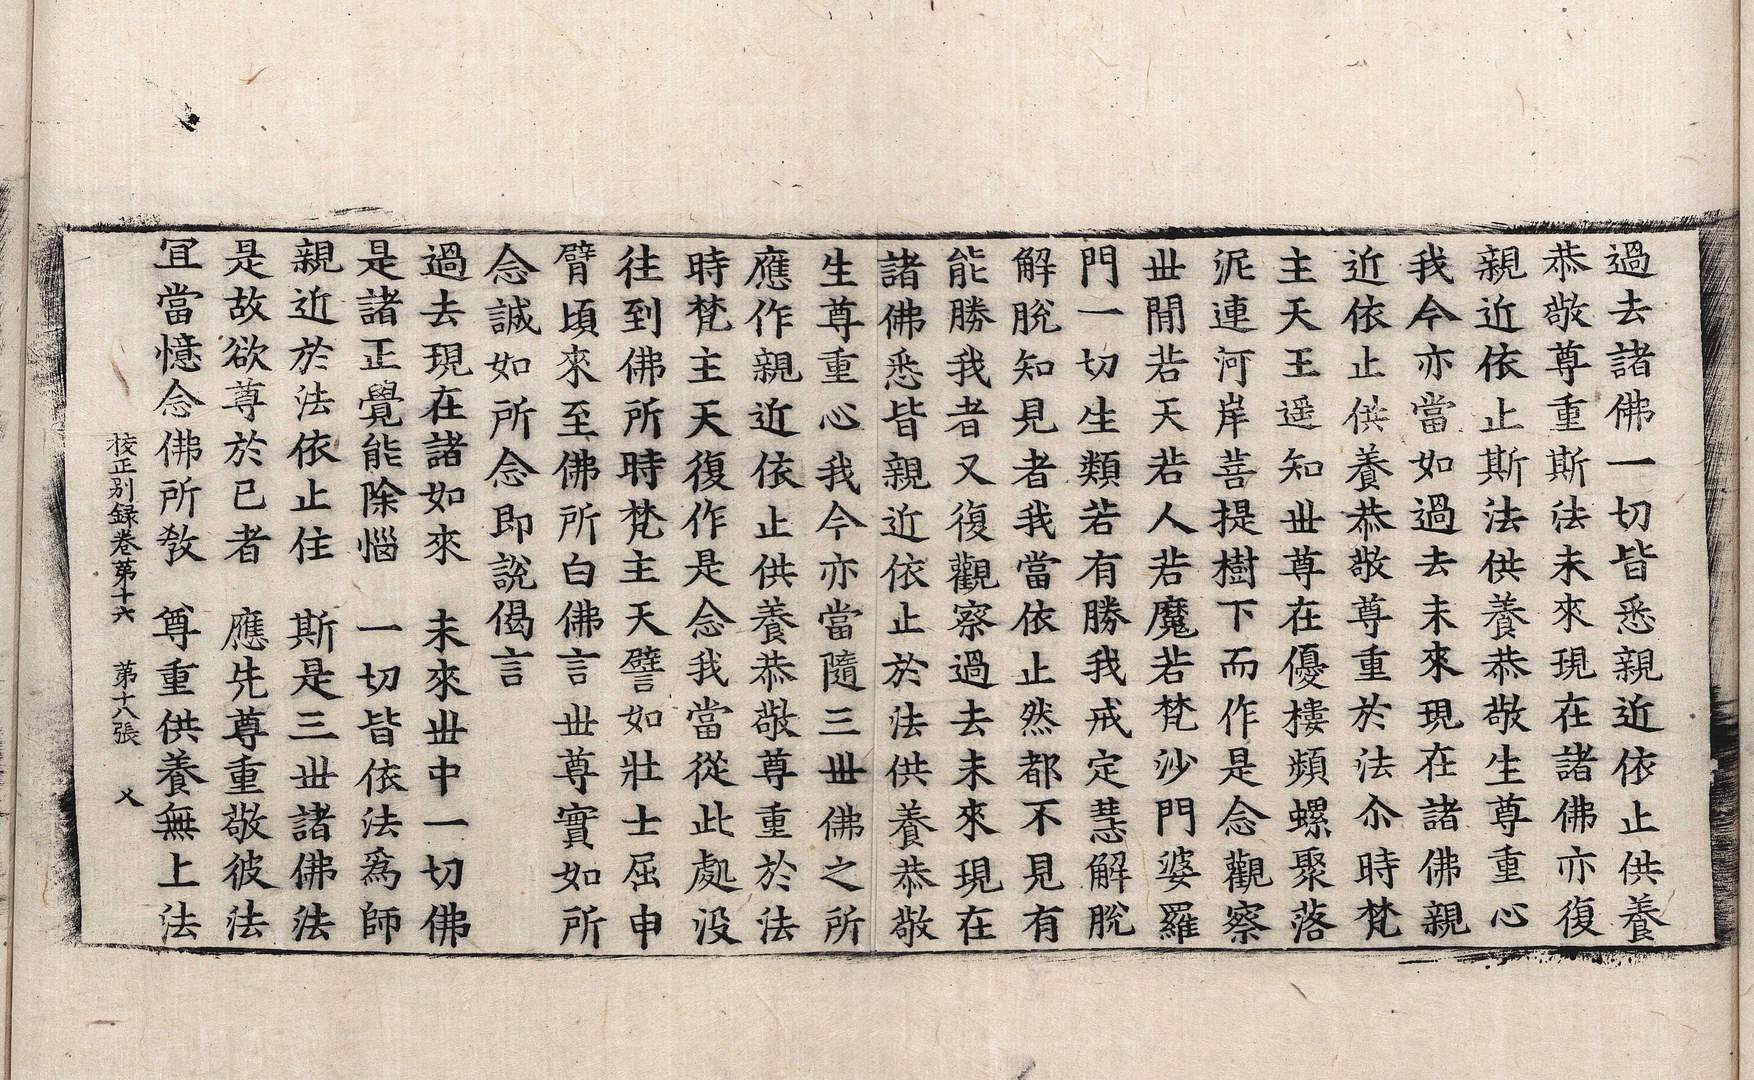 過去諸佛一切皆悉親近依止供養
恭敬尊重斯法未來現在諸佛亦復
親近依止斯法供養恭敬生尊重心
我今亦當如過去未來現在諸佛親
近依止供養恭敬尊重於法尒時梵
主天王遥知丗尊在優樓頻螺聚落
泥連河岸菩提樹下而作是念觀察
丗閒若天若人若魔若梵沙門婆羅
門一切生類若有勝我戒定慧解脫
解脫知見者我當依止然都不見有
能勝我者又復觀察過去未來現在
諸佛悉皆親近依止於法供養恭敬
生尊重心我今亦當隨三丗佛之所
應作親近依止供養恭敬尊重於法
時梵主天復作是念我當從此處没
往到佛所時梵主天譬如壯士屈申
臂頃來至佛所白佛言丗尊實如所
念誠如所念即說偈言
過去現在諸如來　未來丗中一切佛
是諸正覺能除惱　一切皆依法爲師
親近於法依止住　斯是三丗諸佛法
是故欲尊於己者　應先尊重敬彼法
宜當憶念佛所敎　尊重供養無上法
校正別録卷第十六　第十八張　乂